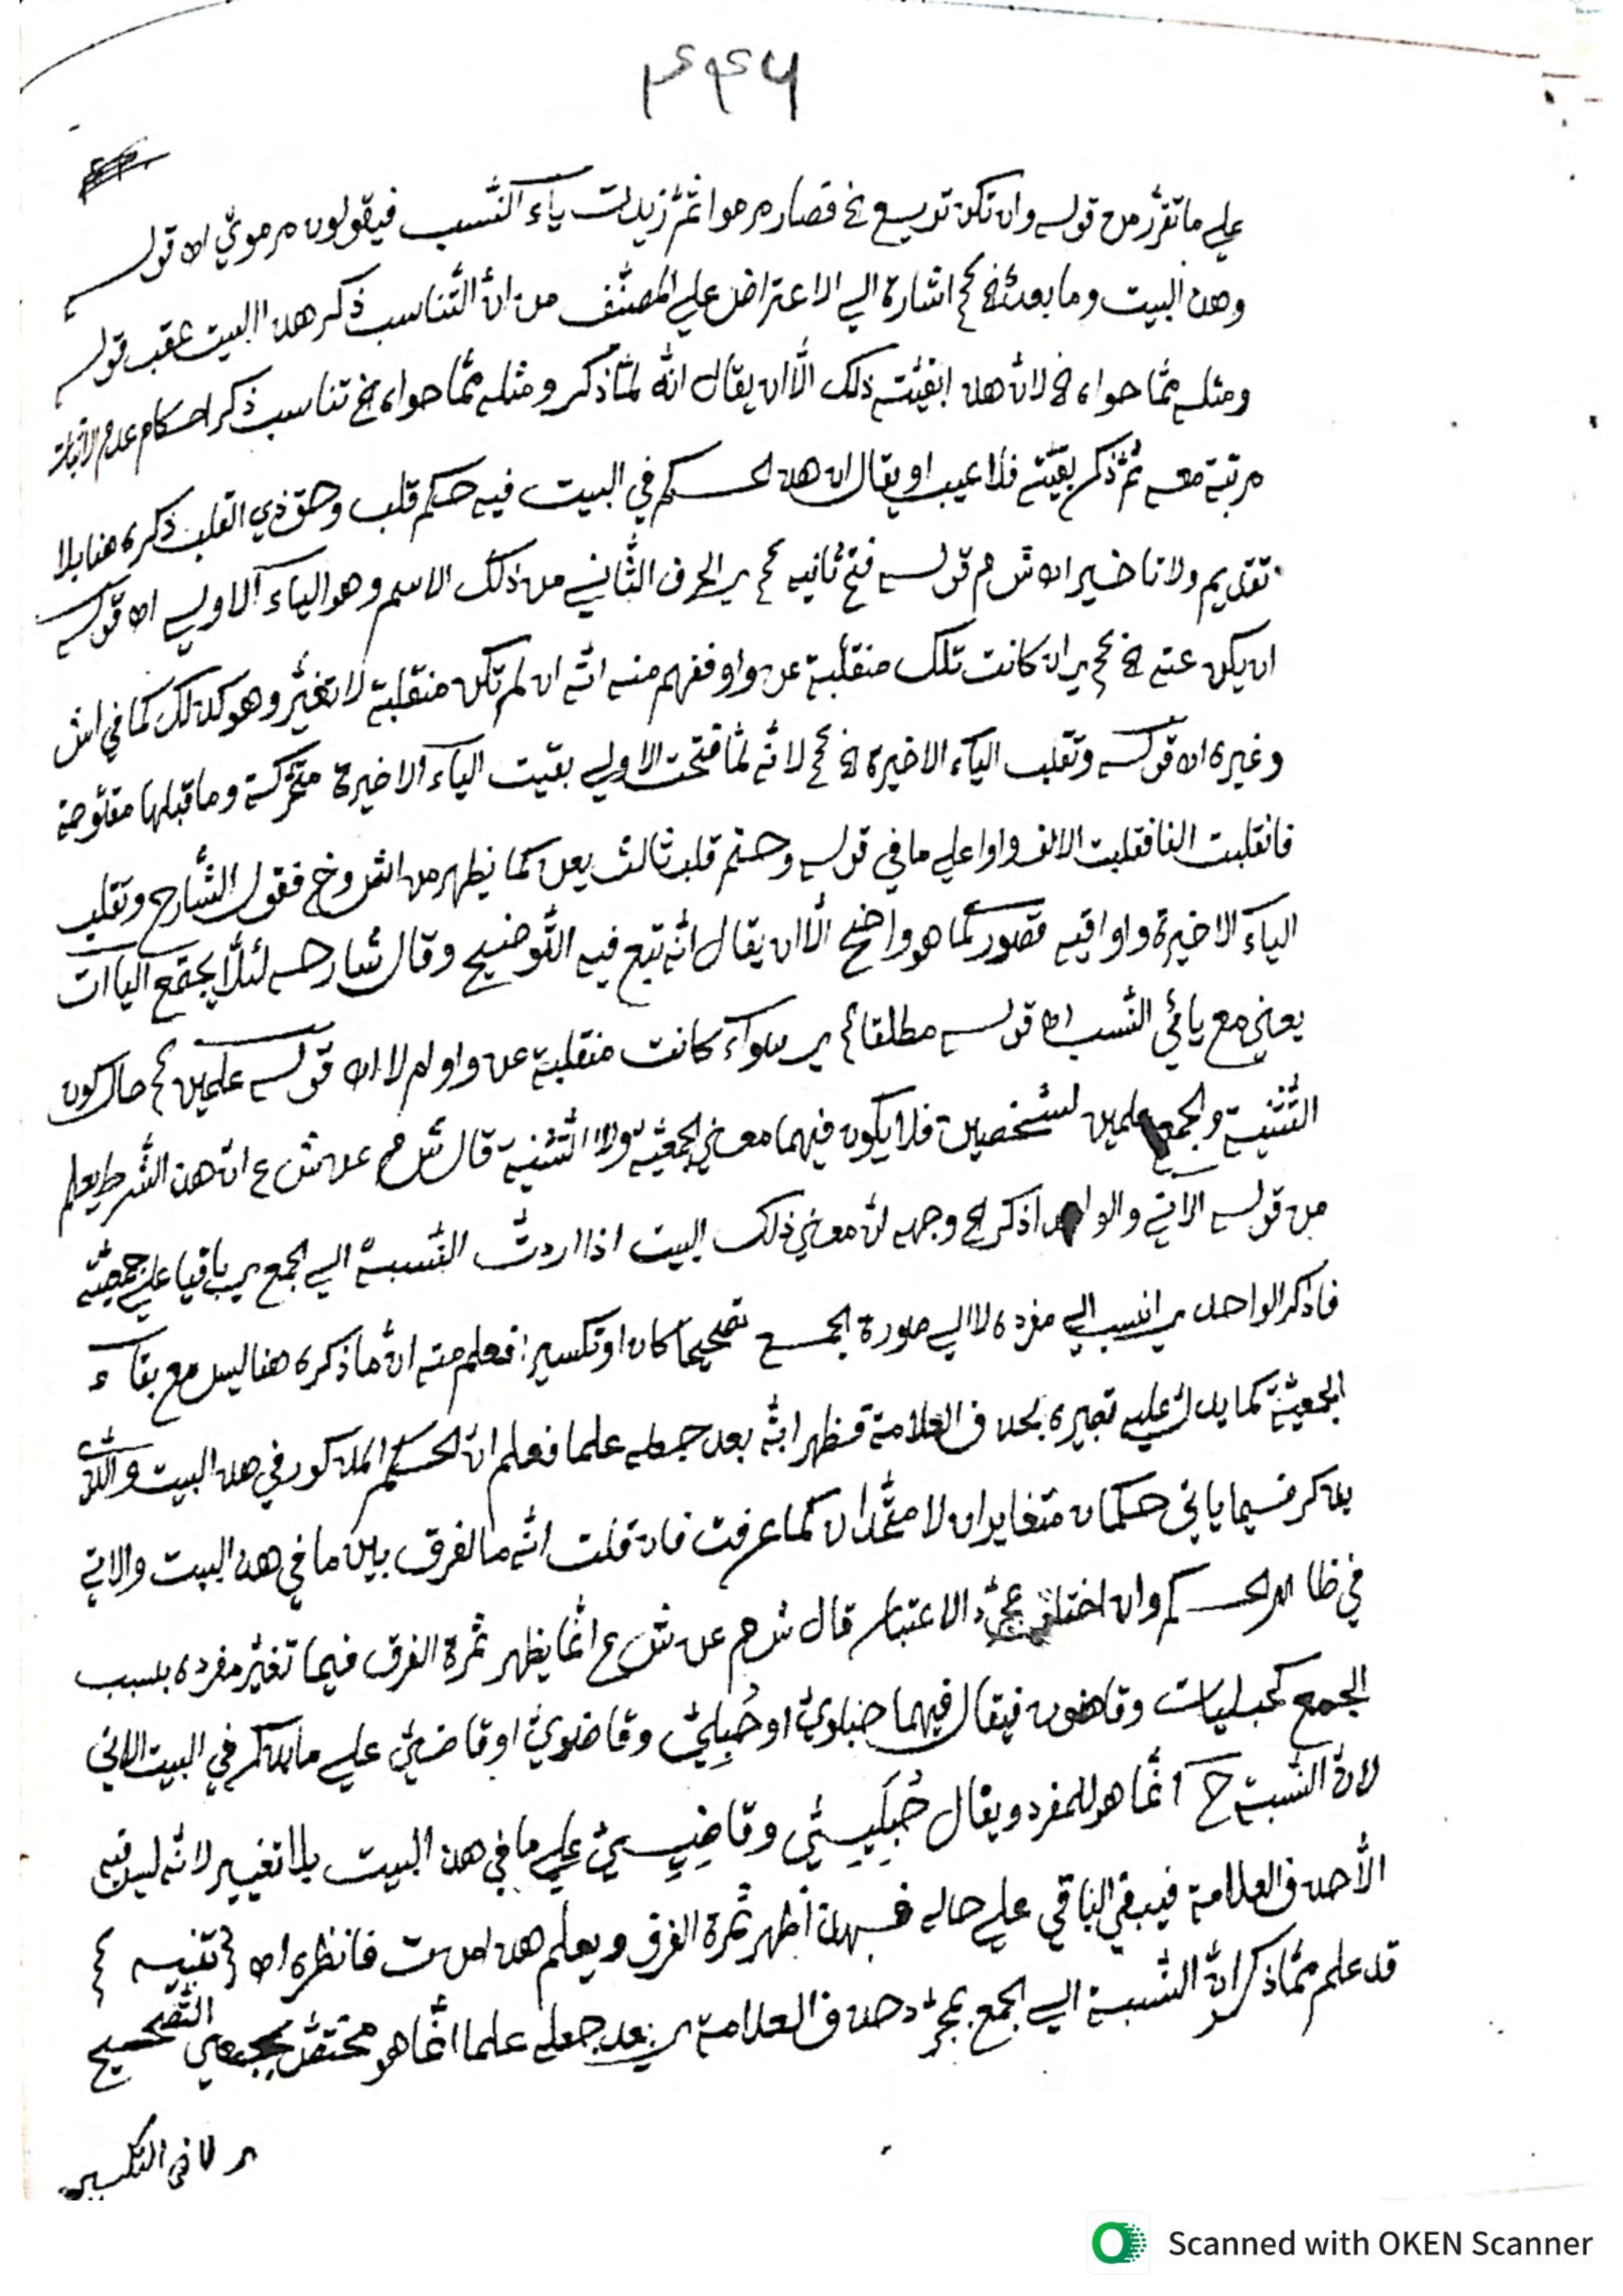 ٣٤٦
علي ما تقرّر من قوله وان تكن تربع الخ فصار مرموا ثمّ زيدت ياء النّسب فيقولون مرمويّ اه قوله
وهذا البيت وما بعده الخ كم اشارة الي الاعتراض علي المصنّف من انّ التّناسب ذكر هذا البيت عقب قوله
ومثله ممّا حواه الخ لانّ هذا ابقيّته ذلك الّا ان يقال انّه لمّا ذكر ومثله ممّا حواه الخ تناسب ذكر احكام عدم الاثبات
مرتبة معه ثمّ ذكر بقيّته فلا عيب او يقال ان هذا الحكم في البيت فيه حكم قلب وحق ذي القلب ذكره هنا بلا
تقديم ولا تاخير اه ش م قوله فتح ثانيه كم ير الحرف الثّاني من ذلك الاسم وهو الياء الاولي اه قوله
ان يكن عنه الخ كم ير ان كانت تلك منقلبة عن واو ففهم منه انّه ان لم تكن منقلبة لا تغيّر وهو كذلك كما في اش
وغيره اه قوله وتقلب الياء الاخيرة الخ كم لانّه لمّا فتحت الاولي بقيت الياء الاخيرة متحرّكة وما قبلها مفتوحة
فانقلبت الفا فقلبت الالف واوا علي ما في قوله وحتم قلب ثالث يعن كما يظهر من اش وخ فقول الشّارح وتقلب
الياء الاخيرة واوا فيه قصور كما هو واضح الّا ان يقال انّه تبع فيه التّوضيح وقال شارحه لئلّا يجتمع الياآت
يعني مع يائي النّسب اه قوله مطلقا كم ير سواء كانت منقلبة عن واو ام لا اه قوله علمين كم حال كون
التّثنية والجمع علمين لشخصين فلا يكون فيهما معني الجمعيّة ولا التّثنية قال ش م عن ش ع انّ هذا الشّرط يعلم
من قوله الاتي والواحد اذكر الخ وجهه انّ معني ذلك البيت اذا اردت النّسبة الي الجمع ير باقيا علي جمعيّته
فاذكر الواحد ير انسب الي مفرده لا الي صورة الجمع تصحيحا كان او تكسيرا فعلم منه انّ ما ذكره هنا ليس مع بقاء
الجمعيّة كما يدلّ عليه تعبيره بحذف العلامة فظهر انّه بعد جعله علما فعلم انّ الحكم المذكور في هذا البيت والذي
يذكر فسيما ياتي حكمان متغايران لا متّحدان كما عرفت فان قلت انّه ما الفرق بين ما في هذا البيت والاتي
في ظاهر الحكم وان اختلف بمجرّد الاعتبار قال ش م عن ش ع انّما يظهر ثمرة الفرق فيما تغيّر مفرده بسبب
الجمع كحبليات وقاضون فيقال فيهما حبلويّ او حُبليّ وقاضويّ او قاضيّ علي ما يذكر في البيت الاتي
لانّ النّسبة ح انّما هو للمفرد ويقال حُبلَييّ وقاضِييّ علي ما في هذا البيت بلا تغيير لانّه ليس فيه
الّا حذف العلامة فيبقي الباقي علي حاله فبهذا ظهر ثمرة الفرق ويعلم هذا من ت فانظره اه تنبيه
قد علم ممّا ذكر انّ النّسبة الي الجمع بمجرّد حذف العلامة ير بعد جعله علما انّما هو مختصّ بجمعي التّصحيح
ير لا في التكسير
Scanned with OKEN Scanner